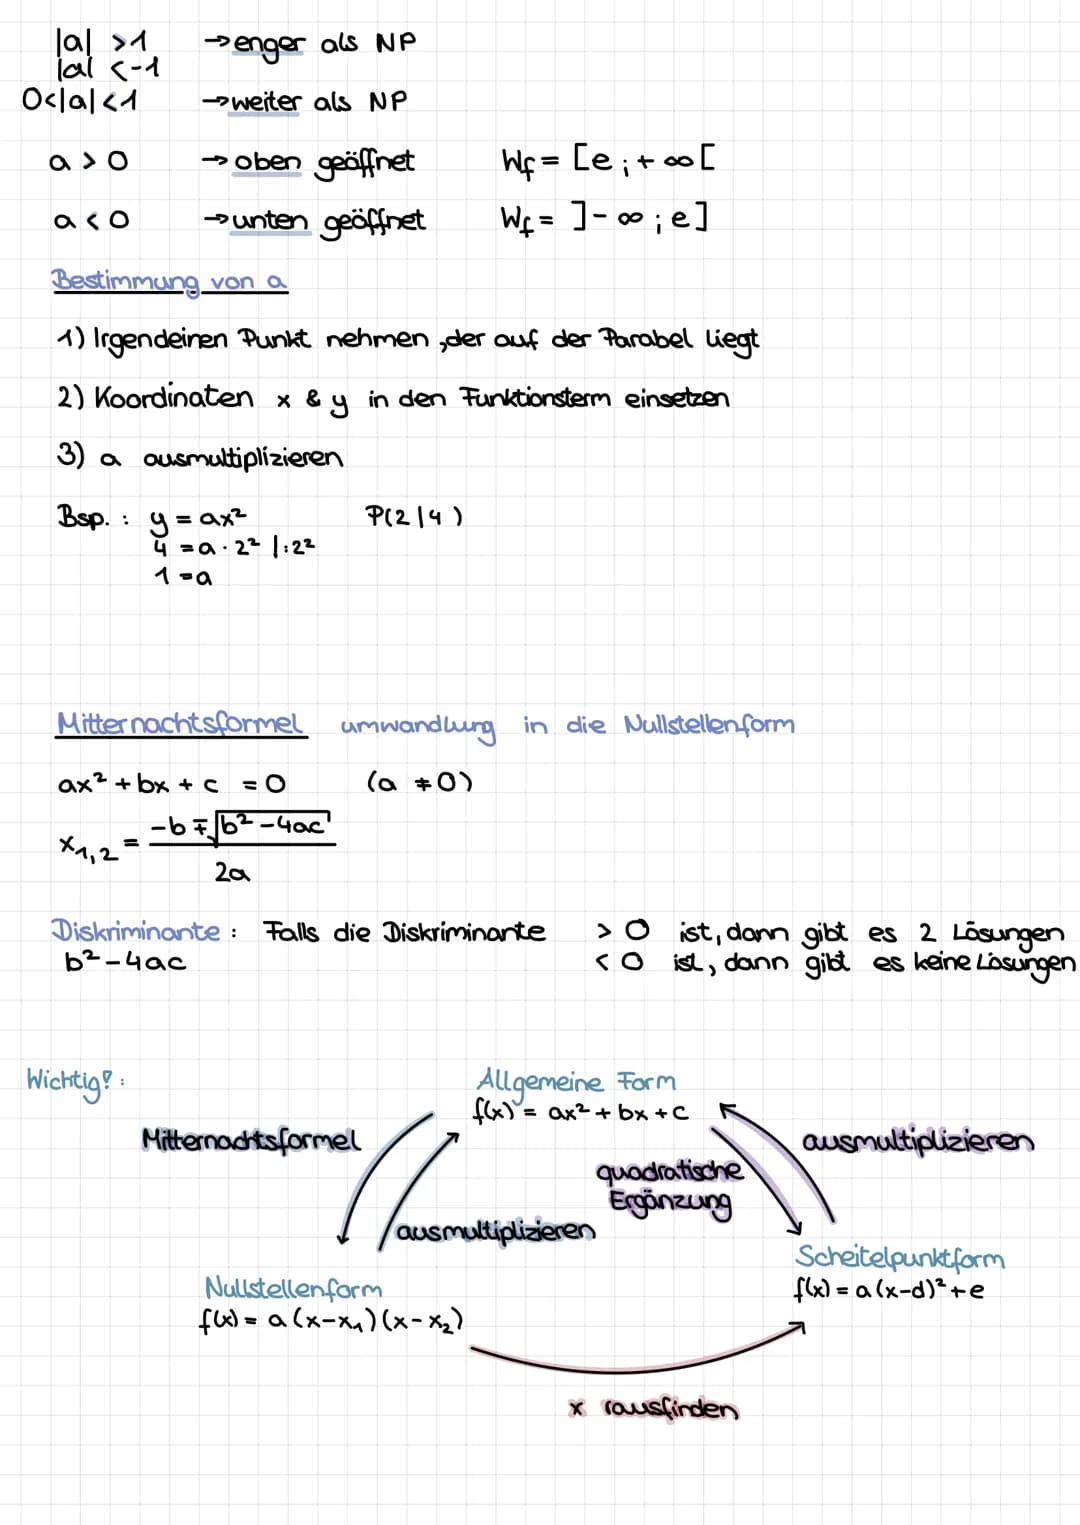 |a| >1 → enger als NP
|a| <-1
0<|a|<1 → weiter als NP
a > 0 → oben geöffnet Wf = [e ; + ∞ [
a < 0 → unten geöffnet Wf = ]- ∞ ; e]
Bestimmung von a
1) Irgendeinen Punkt nehmen, der auf der Parabel liegt
2) Koordinaten x & y in den Funktionsterm einsetzen
3) a ausmultiplizieren
Bsp. : y = ax² P(2|4)
4 = a · 2² |:2²
1 = a
Mitternachtsformel umwandlung in die Nullstellenform
ax² + bx + c = 0 (a ≠ 0)
x₁,₂ = -b ∓ √b² - 4ac
2a
Diskriminante : Falls die Diskriminante > 0 ist, dann gibt es 2 Lösungen
b² - 4ac < 0 ist, dann gibt es keine Lösungen
Wichtig! :
Allgemeine Form
f(x) = ax² + bx + c
Mitternachtsformel
ausmultiplizieren
quadratische
Ergänzung
ausmultiplizieren
Scheitelpunktform
f(x) = a (x-d)² + e
Nullstellenform
f(x) = a (x-x₁) (x-x₂)
x rausfinden